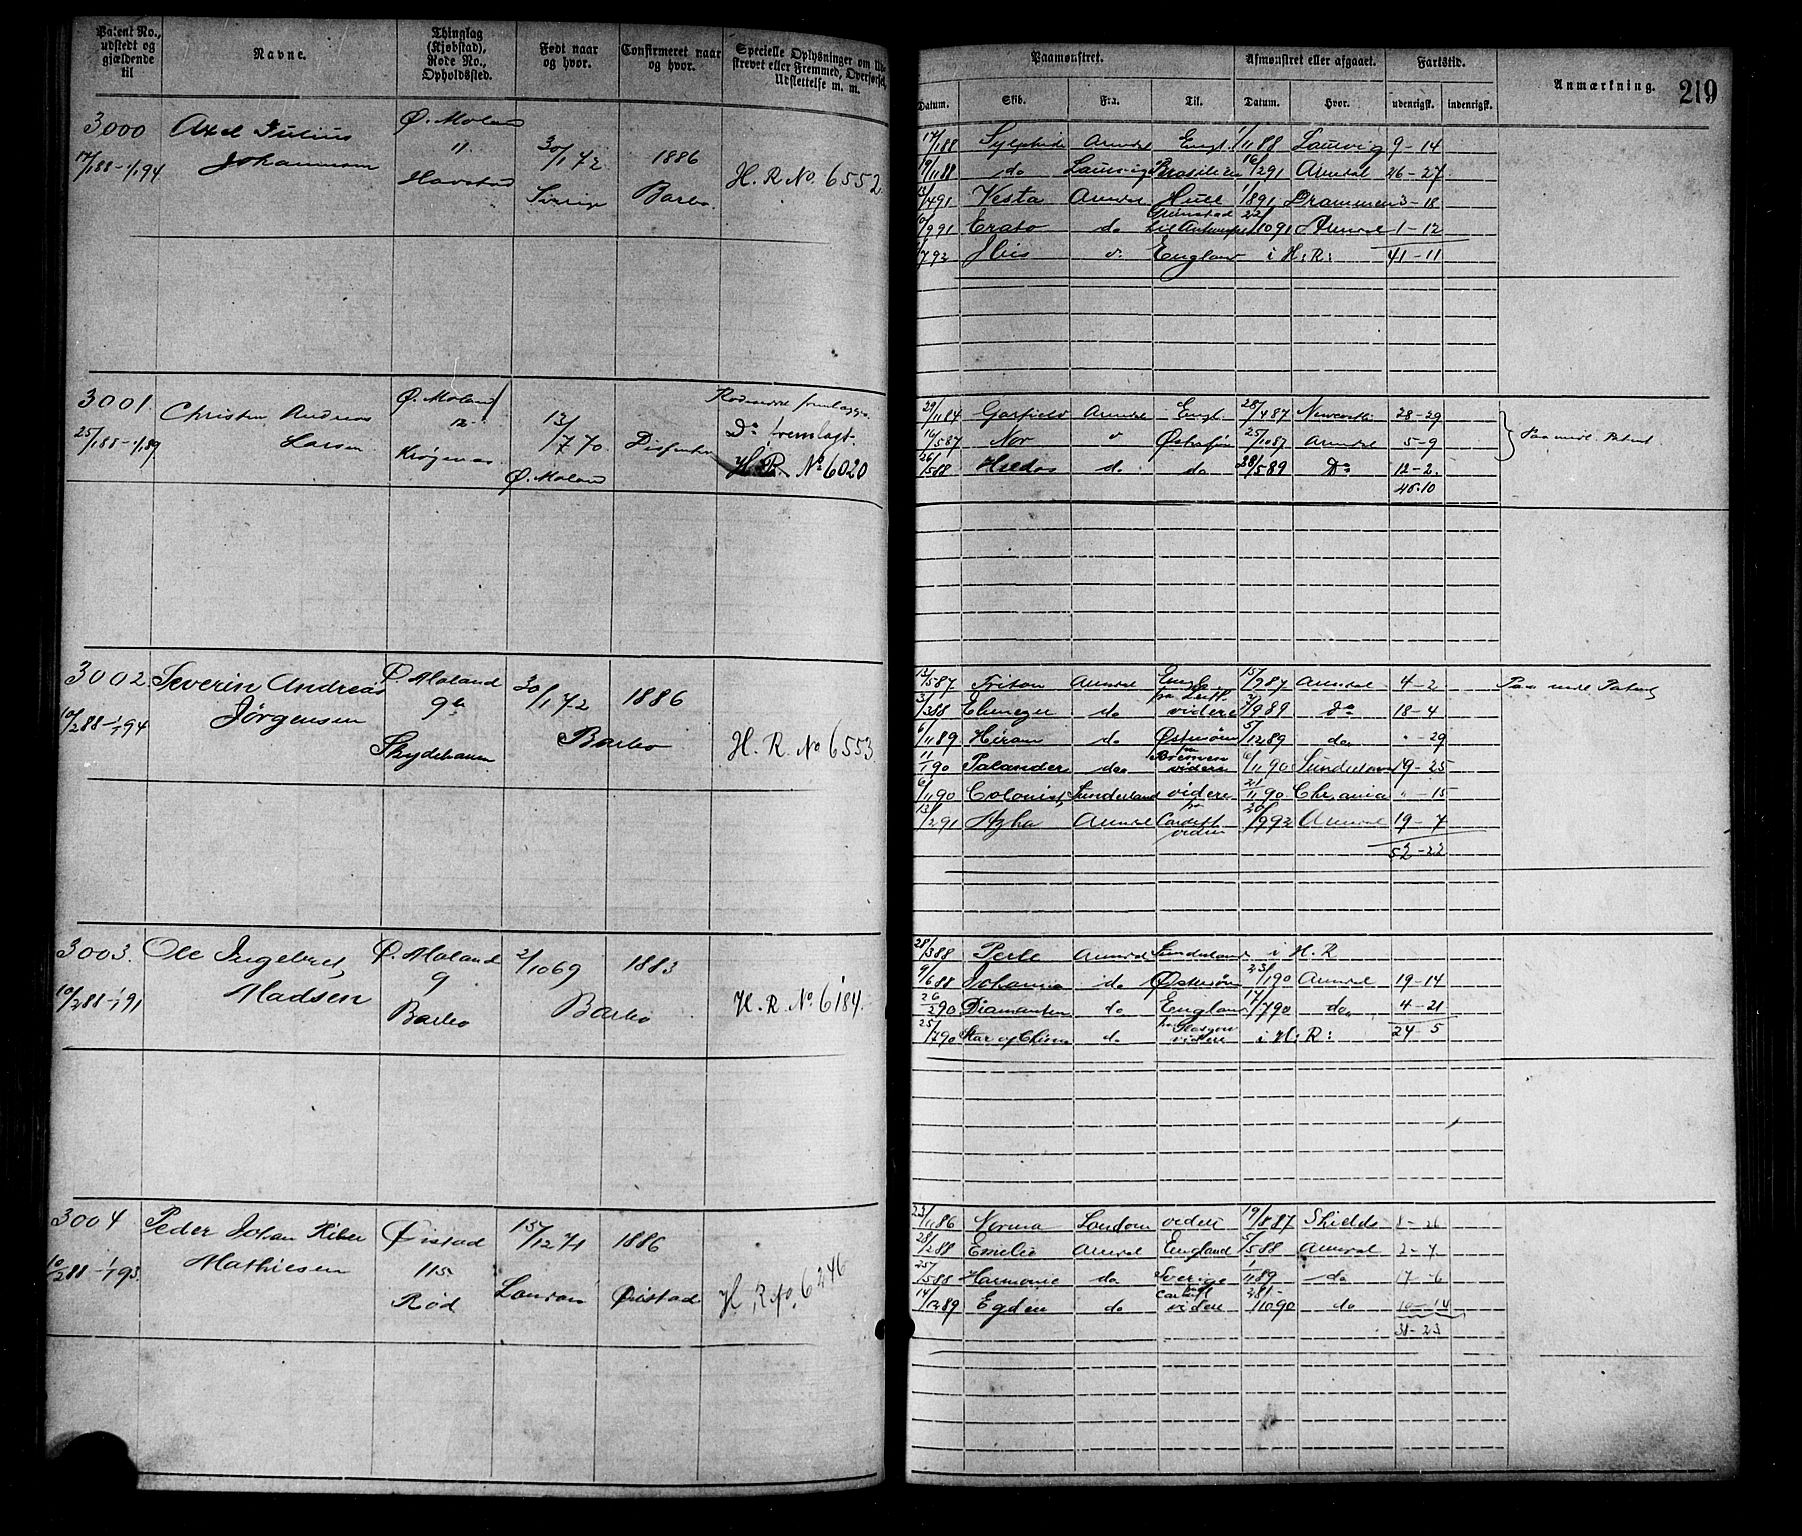 Patent No., udstedt og gjældende til
Navne.
Thinglag (Kjøbstad), Rode No., Opholdssted.
Født naar og hvor.
Confirmeret naar og hvor.
Specielle Oplysninger om Udskrevet eller Fremmed, Overførsel, Udslettelse m. m.
Paamønstret.
Afmønstret eller afgaaet.
Fartstid.
Anmærkning.
219
Datum.
Skib.
Fra.
Til.
Datum.
Hvor.
udenrigsk.
indenrigsk.
3000
17/1 88 – 1/1 94
Axel Julius
Johannesen
Ø. Moland
11
Havstad
30/1 72
Sverige
1886
Barbo
H. R. No. 6552
17/1 88 Sylphide Arendal Engl. 1/11 88 Laurvig 9 – 14
9/11 88 do Laurvig Brasilien 16/2 91 Arendal 26 – 27
/4 91 Vesta Arendal Hull 1/8 91 Drammen 3 – 18
/9 91 Erato do Grimstad til Antwerpen 22/10 91 Arendal 1 – 12
/7 92 Ibis do England i H: R: 41 – 11
3001.
25/1 88 – 1/1 89
Christen Andreas
Larsen
Ø. Moland
12
Krøgenæs
13/7 70.
Ø. Moland
Dissenter
Do fremlagt.
H. R. No 6020
29/11 84 Garfield Arendal Engl. 28/4 87 Newcastle 28 – 29
16/5 87 Nor do Østersøen 25/10 87 Arendal 5 – 9
Paa midl. Patent
26/5 88 do do 28/5 89 Do 12 – 2
46.10
3002.
10/2 88 – 1/1 94
Severin Andreas
Jørgensen
Ø. Moland
9b
Skydehaven
30/1 72
Barbo
1886
H. R. No 6553
12/5 87 Triton Arendal Engl. 15/9 87 Arendal 4 – 2 Paa midl. Patent
3/3 88 Ebenezer do videre /9 89 do 18 – 4
6/11 89 Hiram do Østersøen 5/12 89 do " – 29
11/1 90 Palander do Bremen videre 6/11 90 Sunderland 19 – 25
6/11 90 Colonist Sunderland videre 21/11 90 Chr.ania " – 15
13/2 91 Arendal Cardiff videre 20/9 92 Arendal 19 – 7
52 – 22
3003.
10/2 88 – 1/1 91
Ole Ingebret
Madsen
Ø. Moland
9
Barbo
2/10 69
Barbo
1883
H. R. No 6184.
28/3 88 Perle Arendal Sunderland i H. R
9/6 88 Johanna do Østersøen 23/1 90 Arendal 19 – 14
26/2 90 Diamanten do England 17/7 90 do 4 – 21
25/7 90 Star of China do Glasgow videre i H: R: 24 – 5
3004
10/2 88 – 1/1 93.
Peder Johan Riber
Mathiesen
Øistad
115
Rød
15/12 71
1886
Øistad
H. R. No. 6246
23/11 86 Norma London videre 19/8 87 Shields 8 – 26
28/2 88 Emelie Arendal England 5/5 88 Arendal 2 – 7
25/5 88 Harmonie do Sverige 1/11 89 do 17 – 6
14/12 89 Egden do Cardiff videre 28/10 90 do 10 – 14
31 – 23